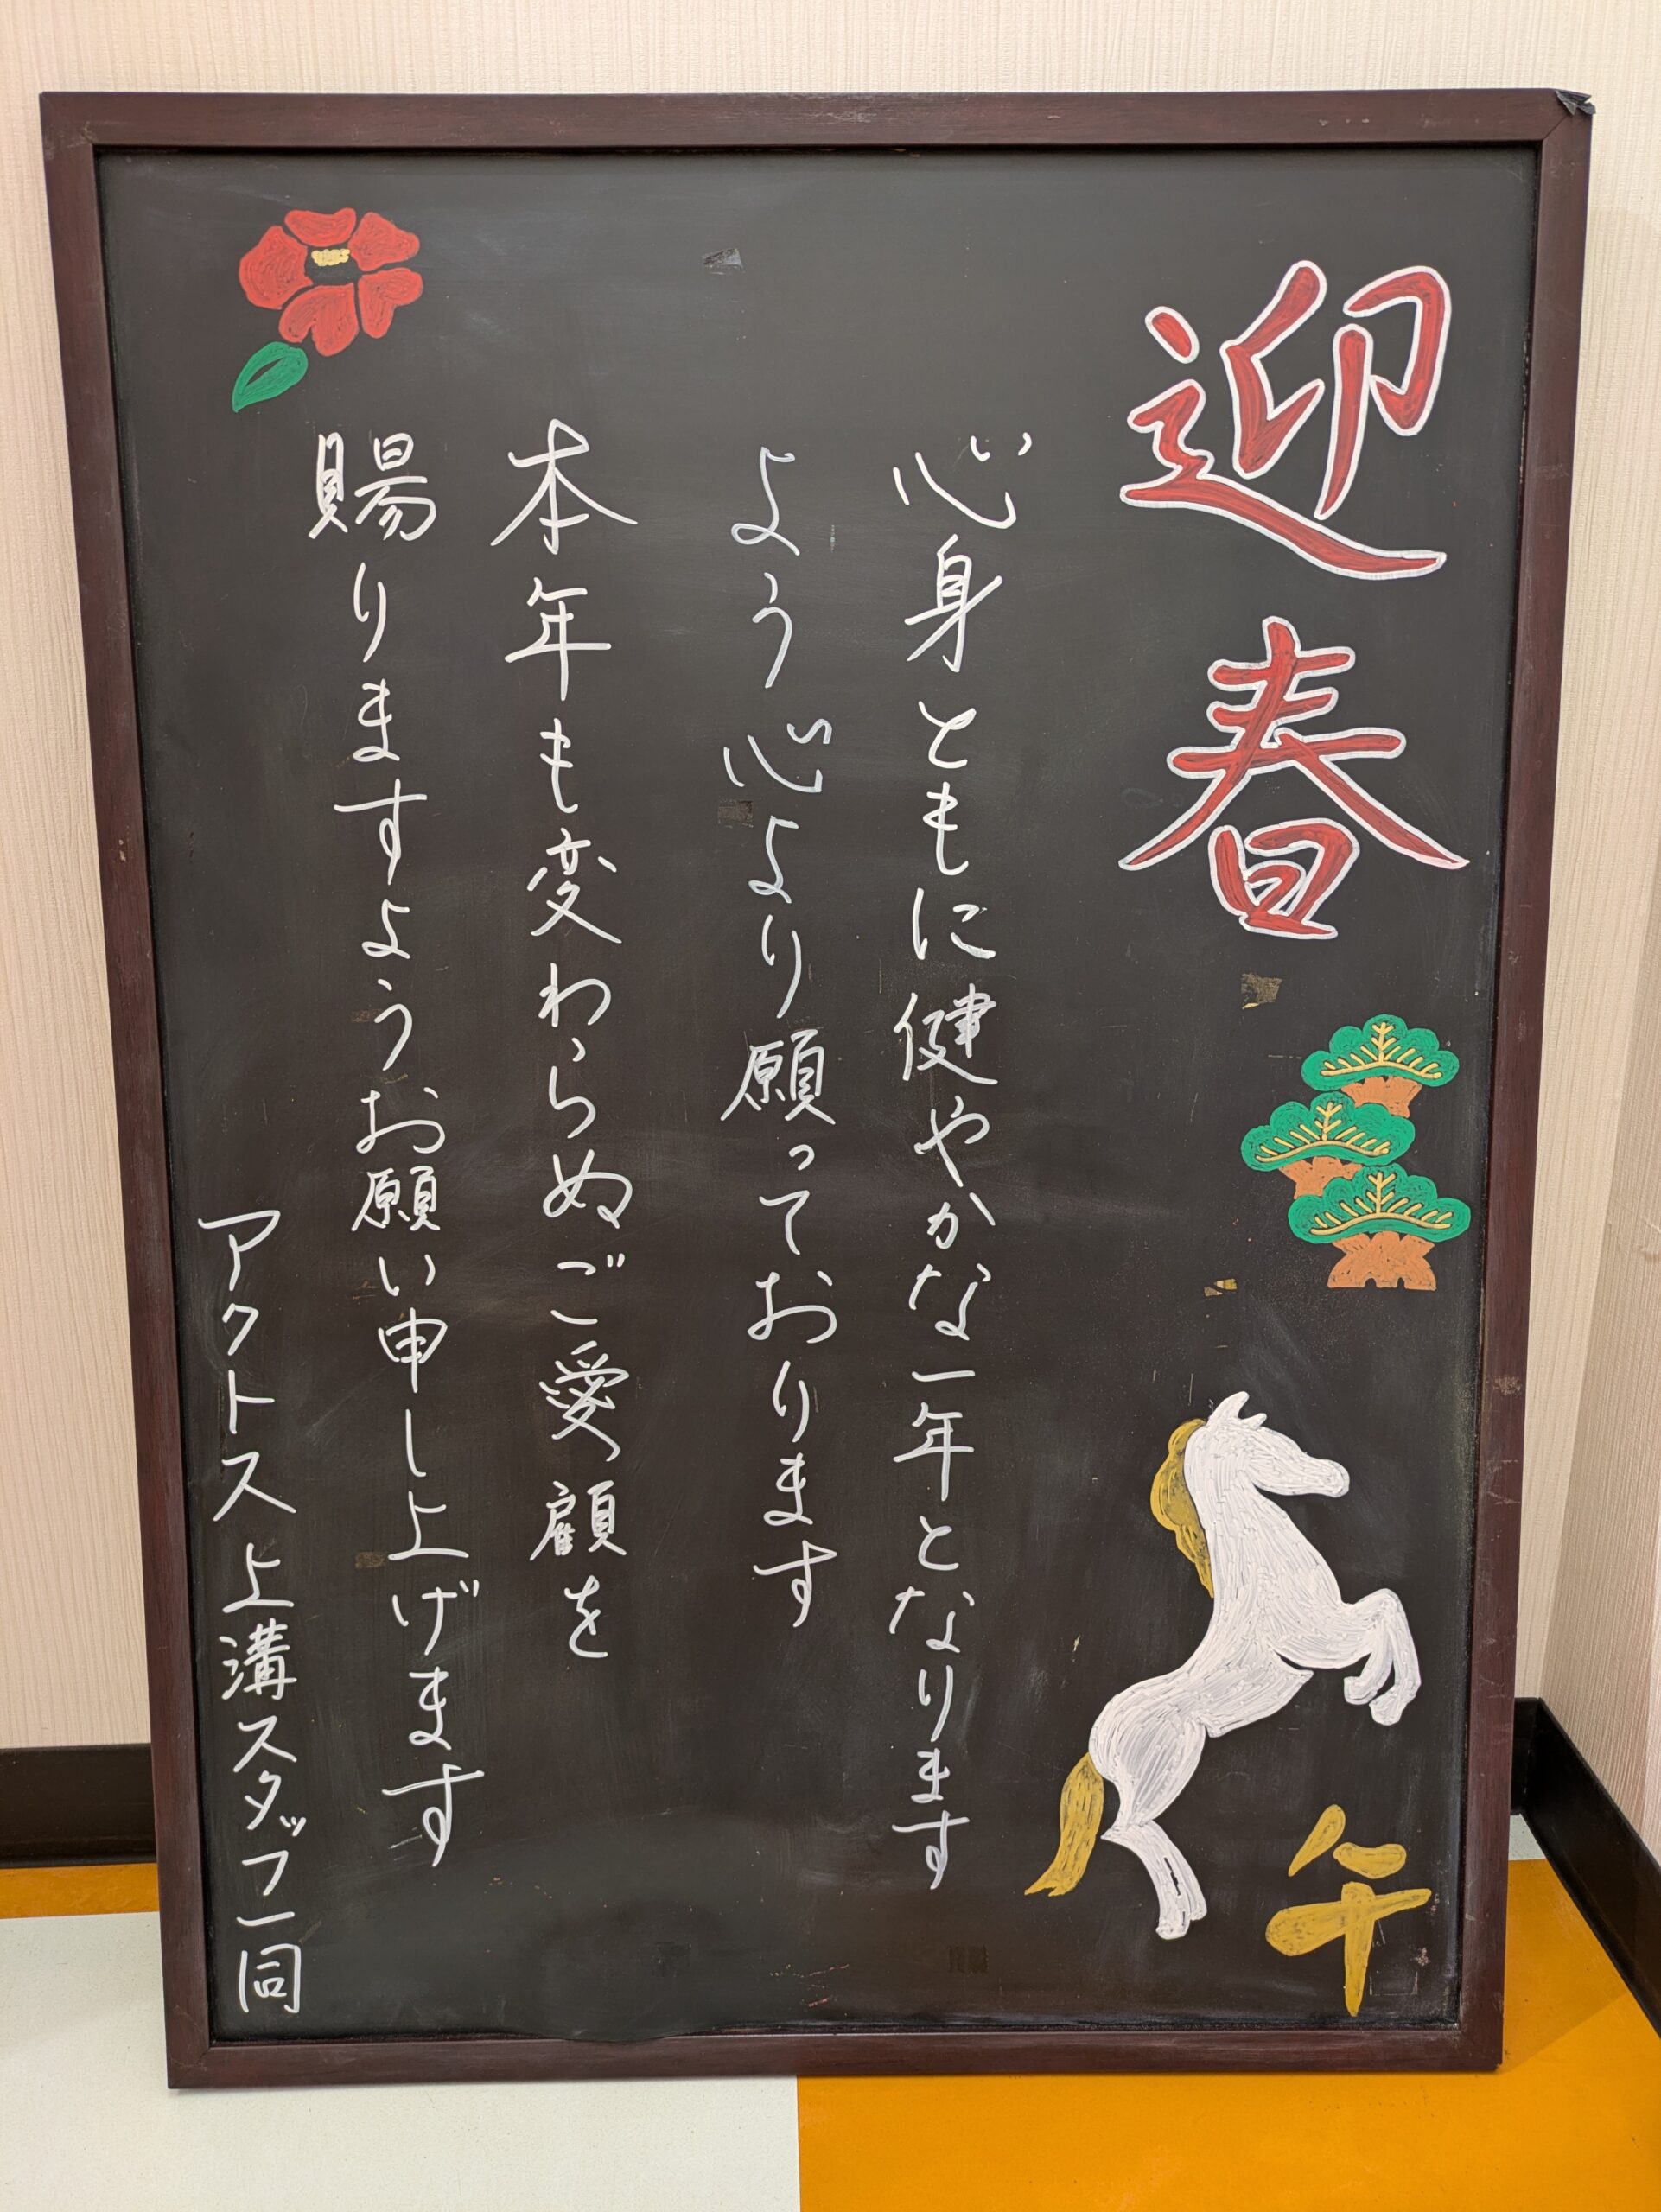 迎春
午
心身ともに健やかな一年となります
よう心より願っております
本年も変わらぬご愛顧を
賜りますようお願い申し上げます
アクトス上溝スタッフ一同